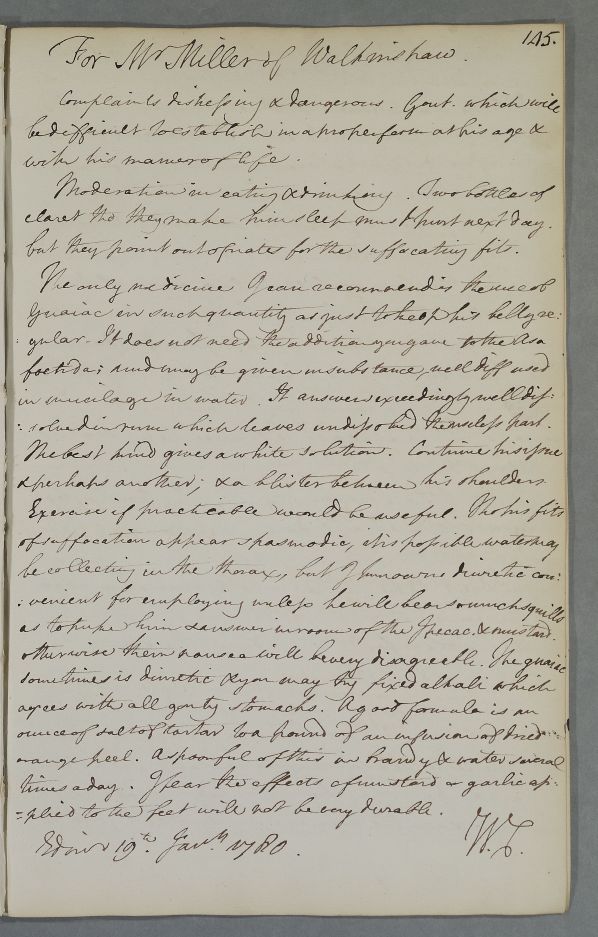 145.
For Mr Miller of Walkinshaw.
Complaints distressing & dangerous. Gout. which will
be difficult to establish in a proper form at his age &
with his maner of life.
Moderation in eating & drinking. Two bottles of
claret tho they make him sleep must hurt next day.
but they point out opiates for the suffocating fits.
The only medicine I can recommend is the use of
Guaiac in such quantity as just to keep his belly re:
:gular. It does not need the addition you gave to the Asa
foetida; and may be given in substance, well diff used
in mucilage in water. It answers exceedingly well dis:
:solved in rum which leaves undissolved the useless part.
The best kind gives a white solution. Continue his issue
& perhaps another; & a blister between his shoulders
Exercise if practicable would be useful. Tho his fits
of suffocation appear spasmodic, it is possible water may
be collecting in the thorax, but I know no diuretic con:
:venient for employing unless he will bear so much squills
as to puke him & answer in room of the Ipecac. & mustard.
otherwise their nausea will be very disagreeable. The guaiac
sometimes is diuretic & you may try fixed alkali which
agrees with all gouty stomachs. A good formula is an
ounce of salt of tartar to a pound of an infusion of dried
orange peel. A spoonful of this in brandy & water several
times a day. I fear the effects of mustard or garlic ap:
:plied to the feet will not be very durable.
Edinr 19th. Janry 1780.
W.C.